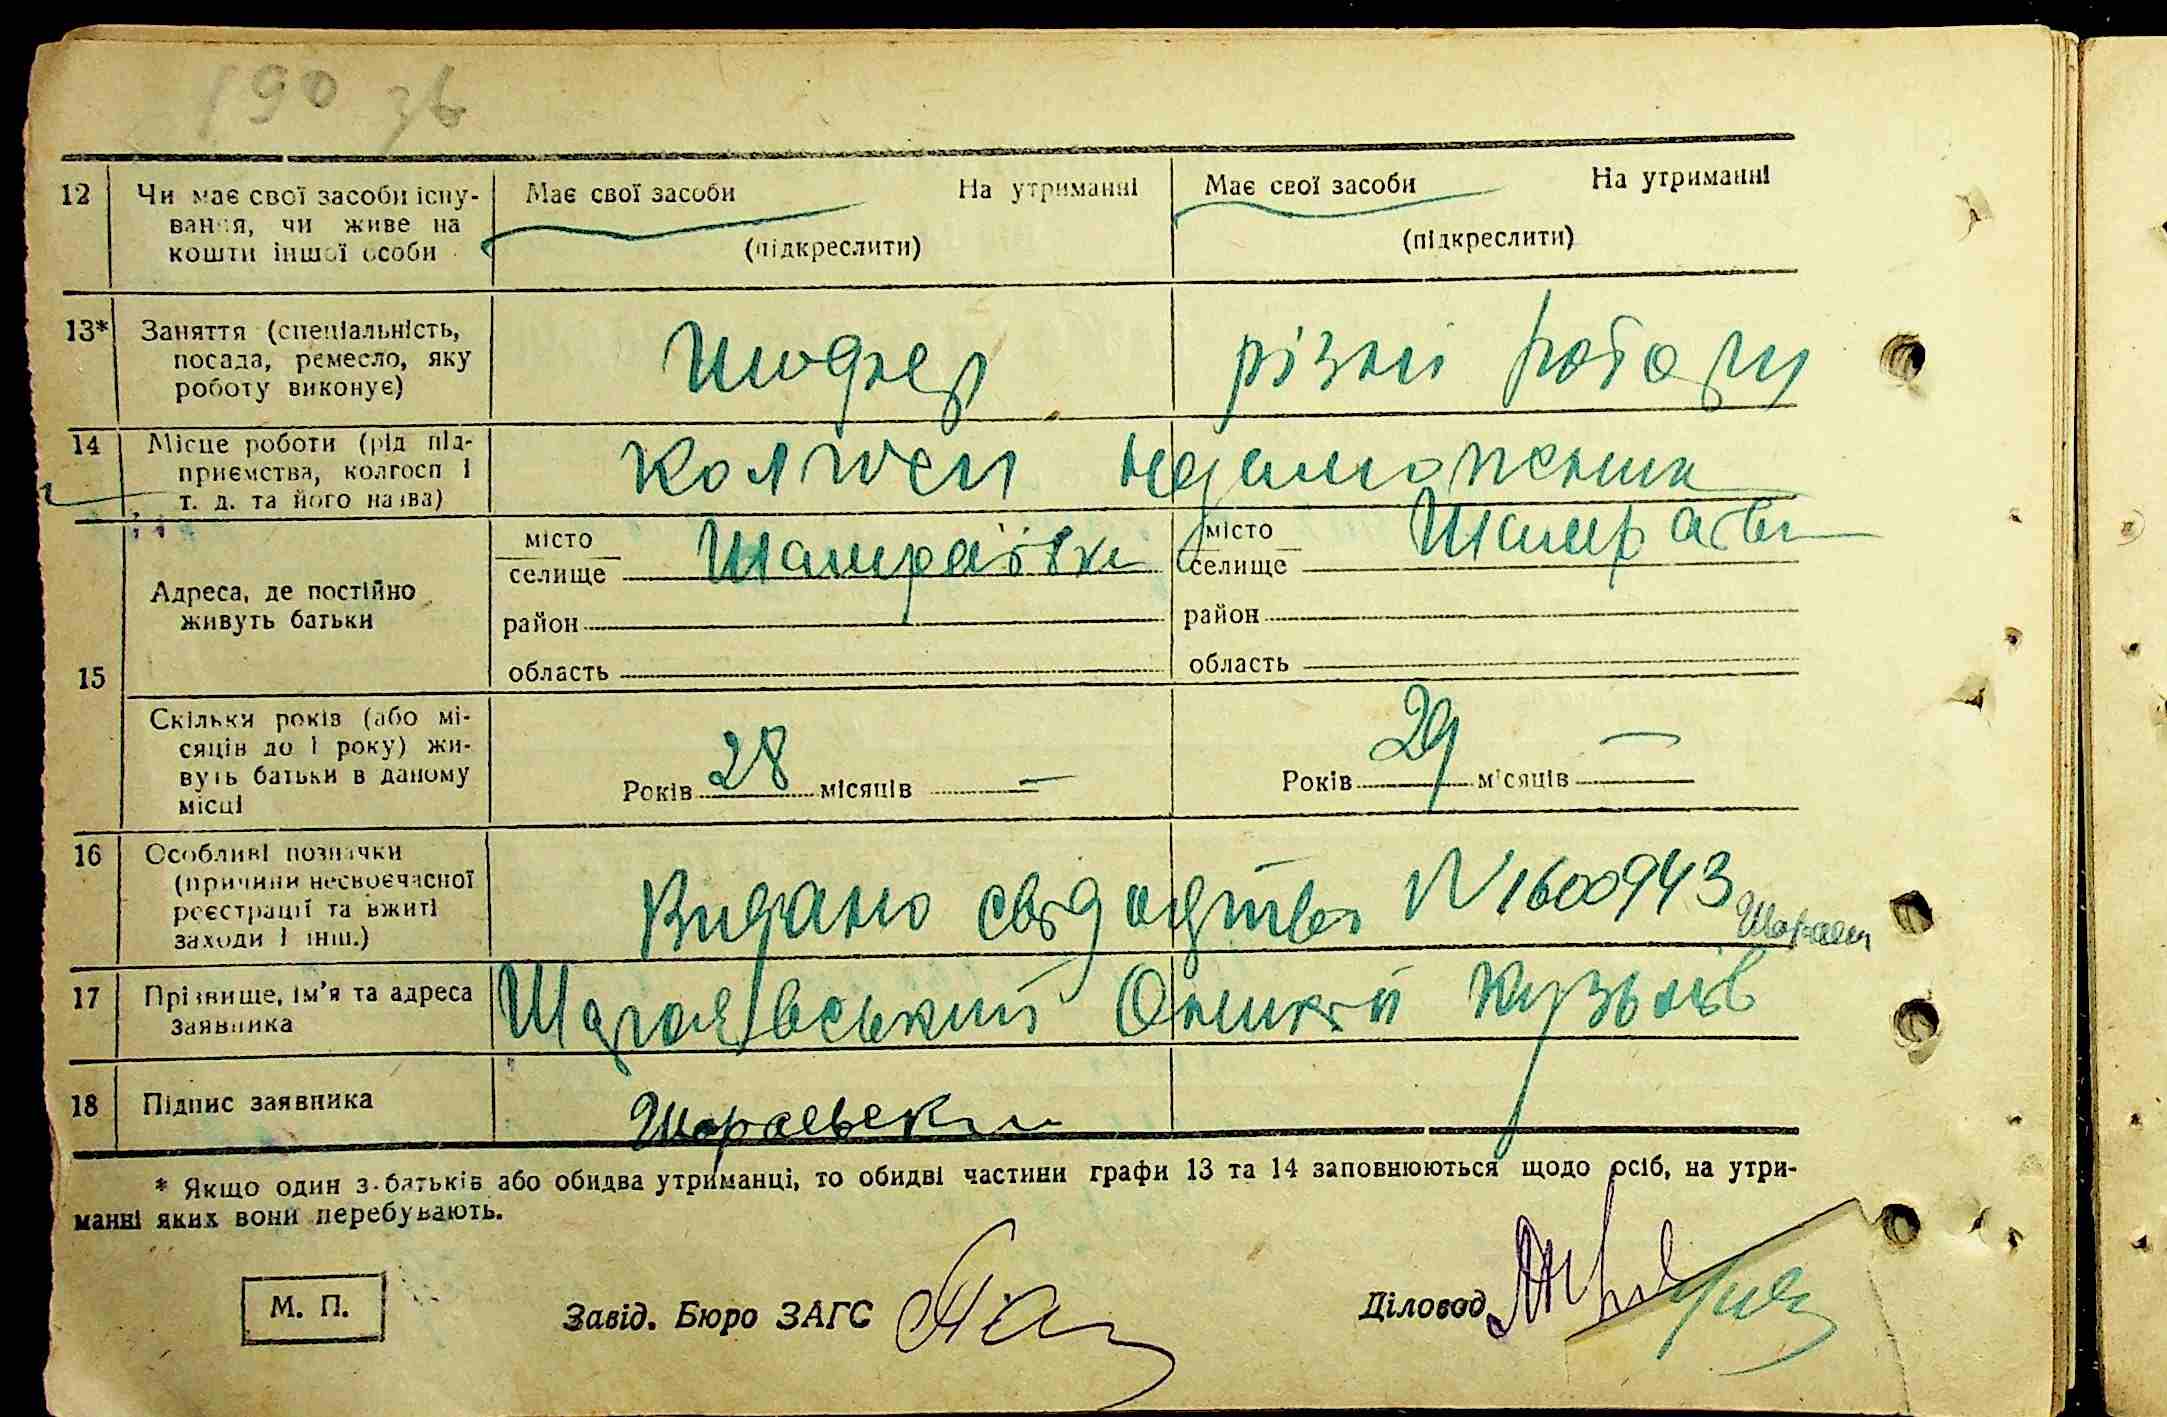 190 зв
12 Чи має свої засоби існу- Має свої засоби На утриманні Має свої засоби На утриманні
вання, чи живе на (підкреслити) (підкреслити)
кошти іншої особи
13* Заняття (спеціальність, Шофер різні роботи
посада, ремесло, яку
роботу виконує)
14 Місце роботи (рід під- Колгосп незаможник
приємства, колгосп і
т. д. та його назва)
15 Адреса, де постійно місто селище Шамраївка місто селище
живуть батьки район район
область область
Скільки років (або мі- Років 28 місяців — Років 29 місяців —
сяців до 1 року) жи-
вуть батьки в даному
місці
16 Особливі позначки Видано свідоцтво N 1600943
(причини несвоєчасної
реєстрації та вжиті
заходи і інш.)
17 Прізвище, ім'я та адреса
заявника
18 Підпис заявника
* Якщо один з батьків або обидва утриманці, то обидві частини графи 13 та 14 заповнюються щодо осіб, на утри-
манні яких вони перебувають.
М. П. Завід. Бюро ЗАГС Діловод